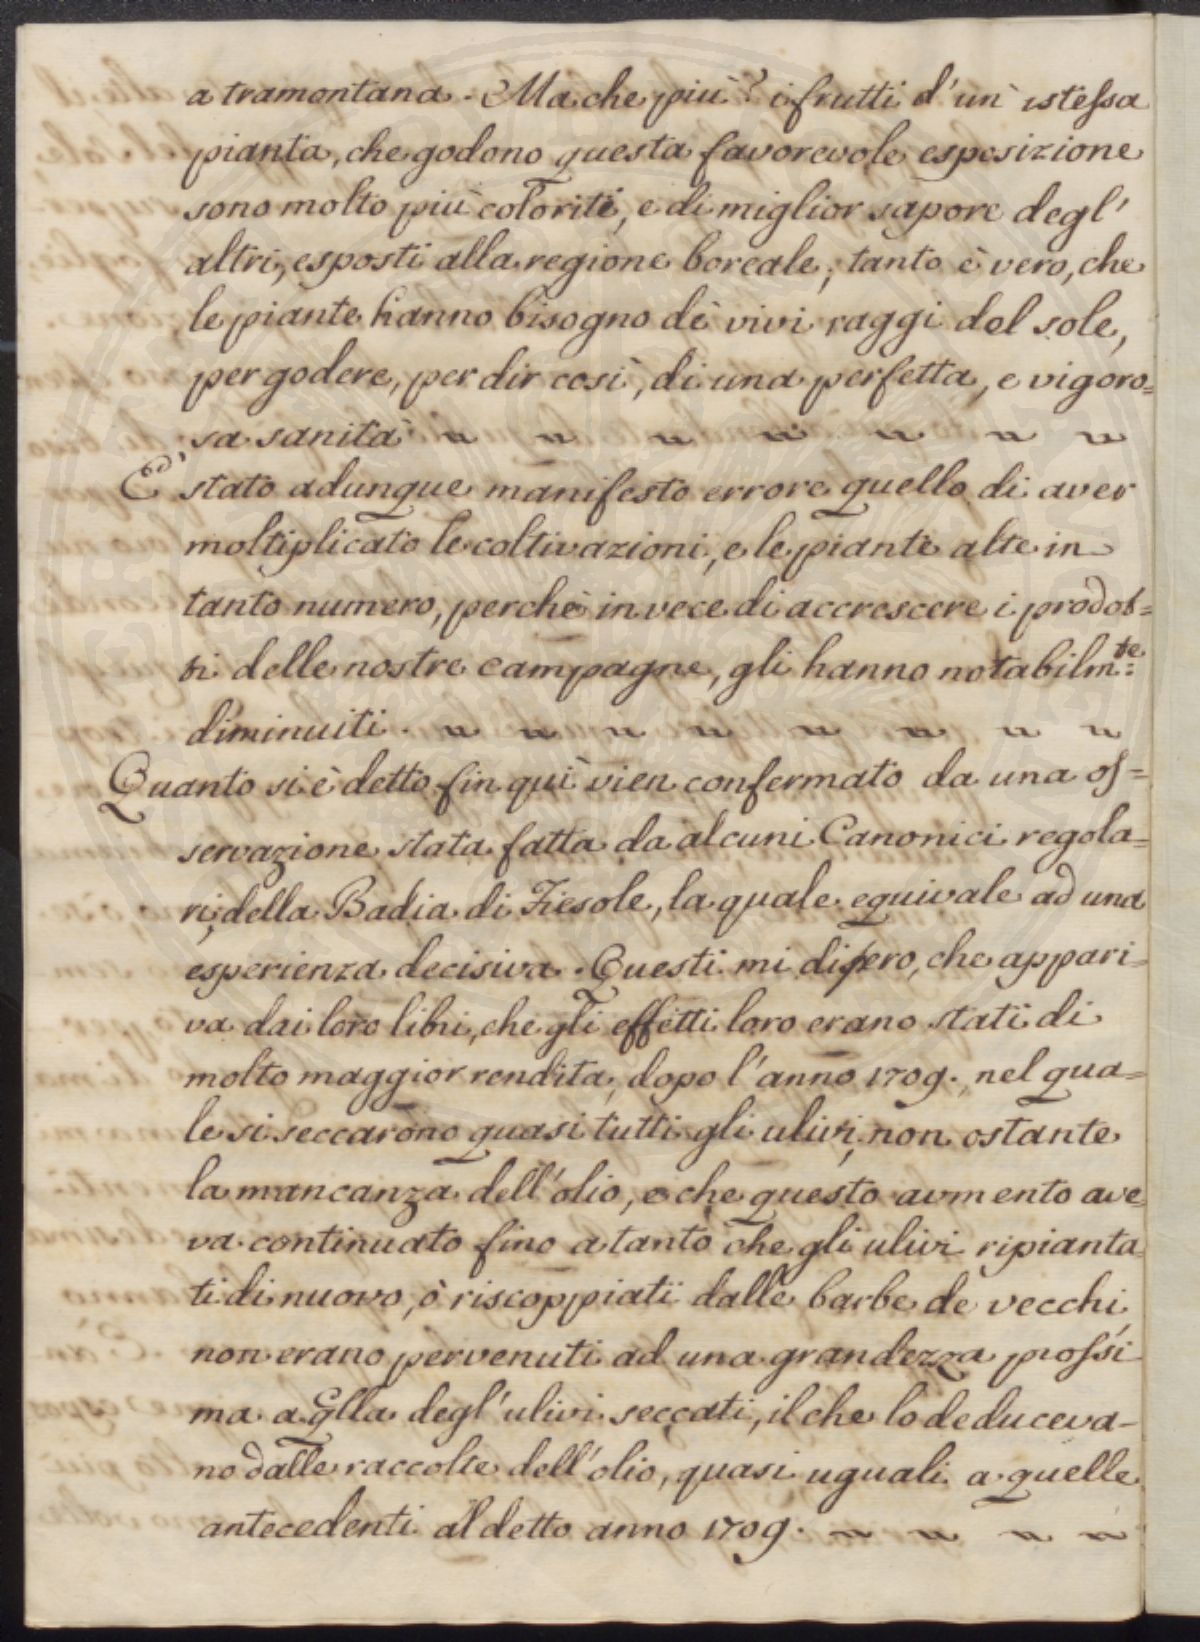 a tramontana. Ma che più? i frutti d'un istessa
pianta, che godono questa favorevole esposizione
sono molto più coloriti, e di miglior sapore degl'
altri, esposti alla regione boreale; tanto è vero, che
le piante hanno bisogno dè vivi raggi del sole,
per godere, per dir così, di una perfetta, e vigoro=
sa sanità
E' stato adunque manifesto errore quello di aver
moltiplicato le coltivazioni, e le piante alte in
tanto numero, perchè in vece di accrescere i prodot=
ti delle nostre campagne, gli hanno notabilm.te
diminuiti.
Quanto si è detto fin quì vien confermato da una os=
servazione stata fatta da alcuni Canonici regola=
ri, della Badia di Fiesole, la quale equivale ad una
esperienza decisiva. Questi mi dissero, che appari=
va dai loro libri, che gli effetti loro erano stati di
molto maggior rendita, dopo l'anno 1709., nel qua=
le si seccarono quasi tutti gli ulivi, non ostante
la mancanza dell'olio, e che questo aumento ave=
va continuato fino a tanto che gli ulivi ripianta
ti di nuovo, ò riscoppiati dalle barbe de vecchi,
non erano pervenuti ad una grandezza prossi
ma a qlla degl'ulivi seccati, il che lo deduceva-
no dalle raccolte dell'olio, quasi uguali a quelle
antecedenti al detto anno 1709.